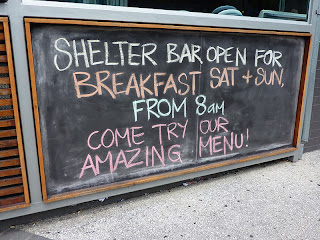 SHELTER BAR OPEN FOR
BREAKFAST SAT + SUN,
FROM 8am
COME TRY OUR
AMAZING MENU!